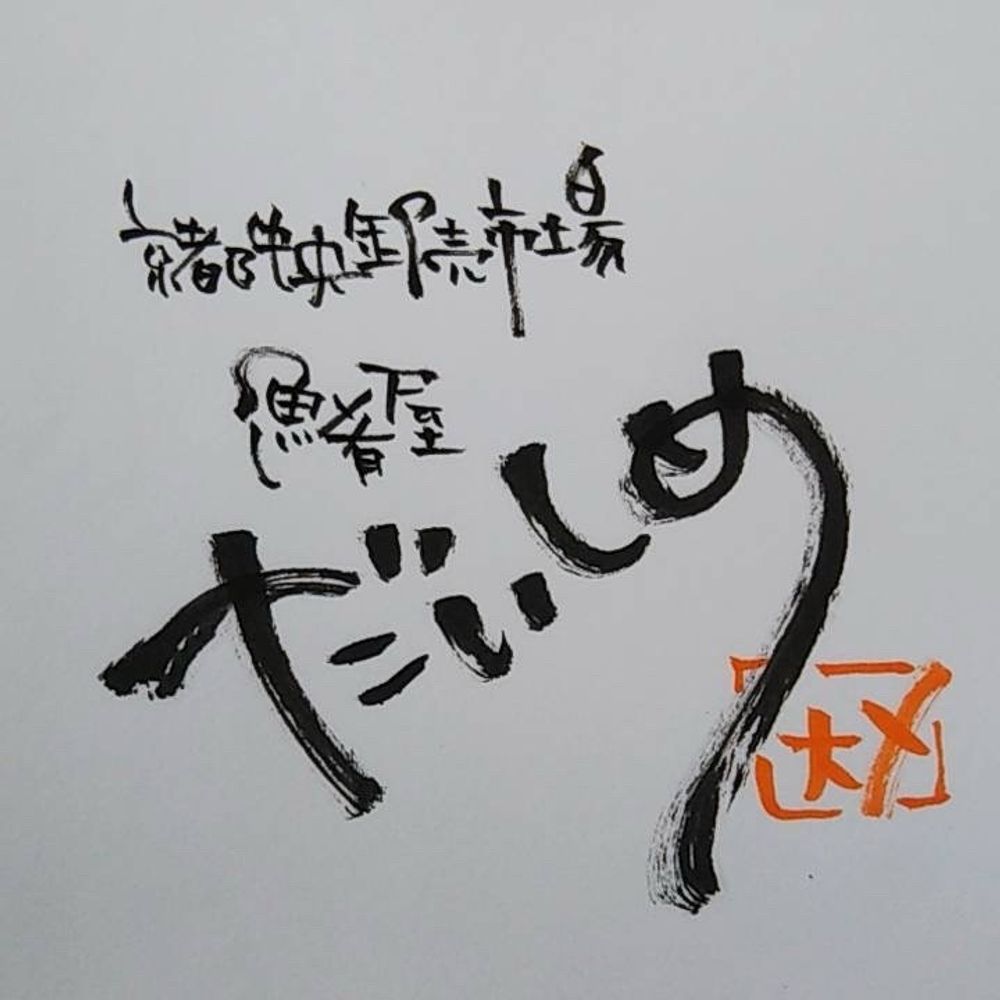 京都中央卸売市場
魚肴屋
だいしめ
大〆